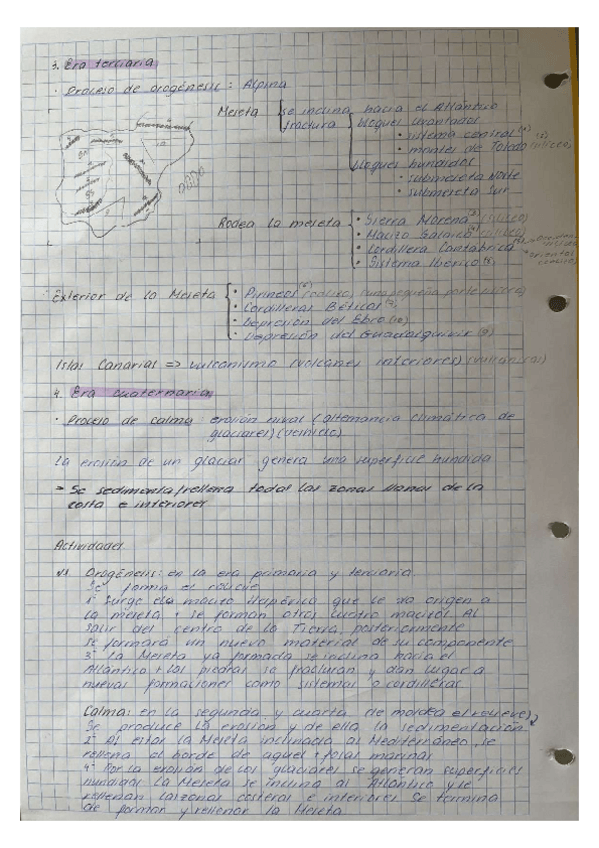 3. Era terciaria
· Proceso de orogénesis : Alpina
Meseta
se inclina hacia el Atlántico
fractura
bloques levantados
· sistema central
· montes de Toledo
bloques hundidos
· submeseta Norte
· submeseta Sur
Rodea la meseta
· Sierra Morena
· Macizo Galaico
· Cordillera Cantábrica
· Sistema Ibérico
Exterior de la Meseta
· Pirineos
· Cordilleras Béticas
· Depresión del Ebro
· Depresión del Guadalquivir
Islas Canarias => vulcanismo (volcanes interiores)
4. Era cuaternaria
· Proceso de calma: erosión nival (alternancia climática de
glaciares)
La erosión de un glaciar genera una superficie hundida
Se sedimenta/rellena todas las zonas llanas de la
costa e interiores
Actividades
Orogénesis: en la era primaria y terciaria.
Se forma el relieve
1º Surge el macizo Hespérico que le da origen a
la meseta + se forman otros cuatro macizos. Al
salir del centro de la Tierra, posteriormente
se formará un nuevo material de su componente
3º La Meseta ya formada se inclina hacia el
Atlántico + los se fracturan y dan lugar a
nuevas formaciones como sistemas o cordilleras.
Calma: en la segunda y cuarta (se moldea el relieve)
Se produce la erosión y de ella la sedimentación
2º Al estar la Meseta inclinada al Mediterráneo, se
rellena al borde de aquel + fosas marinas
4º Por la erosión de los glaciares se generan superficies
hundidas. La Meseta se inclina al Atlántico y se
rellenan las zonas costeras e interiores. Se termina
de formar y rellenar la Meseta